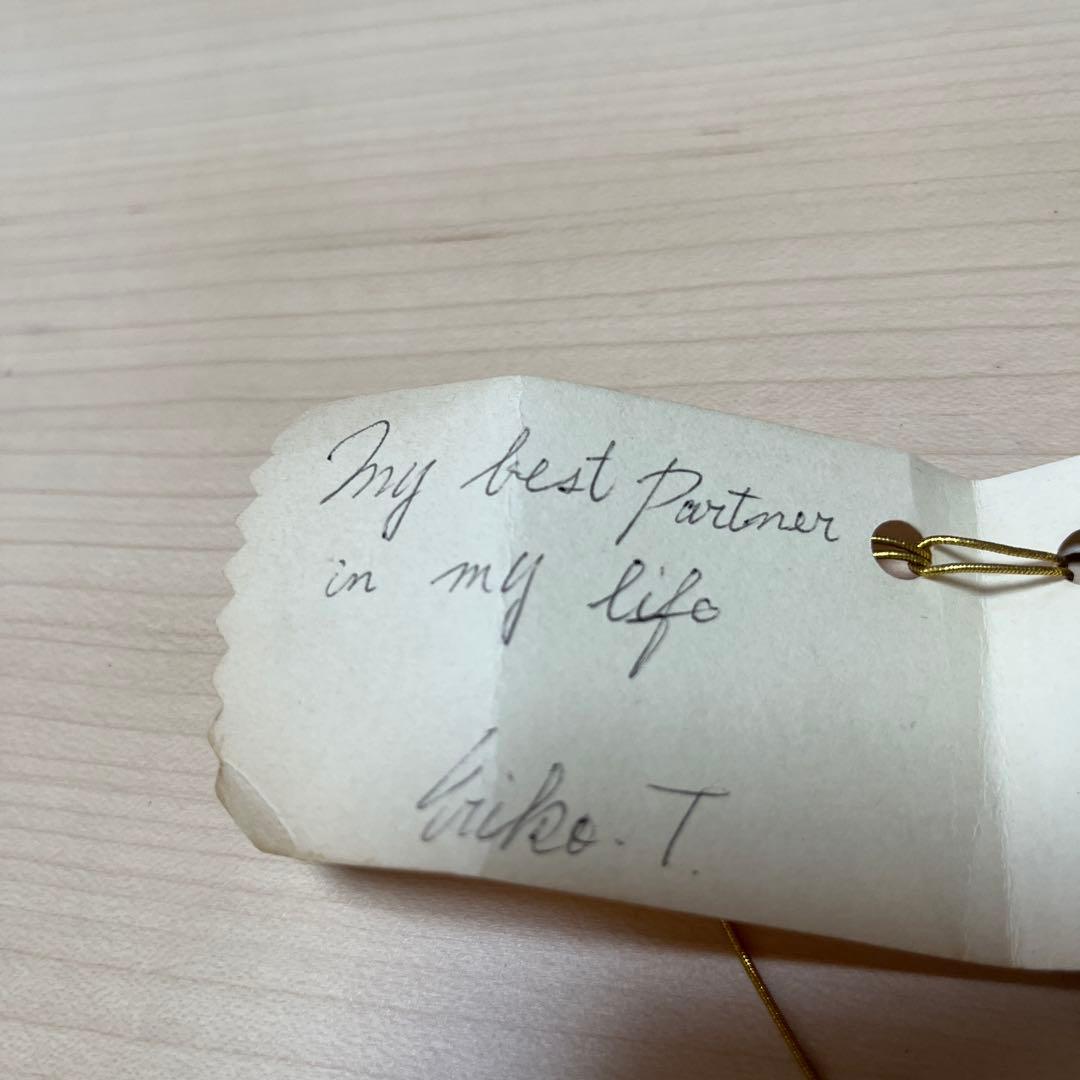 My best Partner
in my life
Eriko. T.